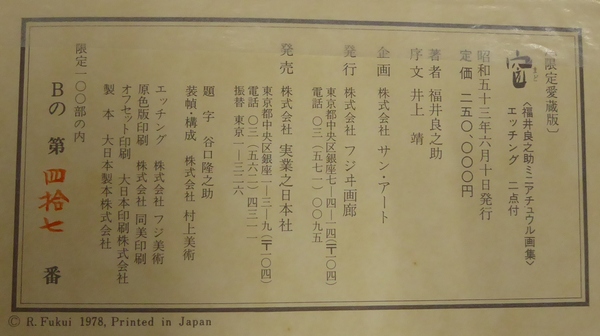 〔限定愛蔵版〕
窓
まど
〈福井良之助ミニアチュウル画集〉
エッチング 二点付
昭和五十三年六月十日発行
定価 二五〇、〇〇〇円
著者 福井良之助
序文 井上 靖
企画 株式会社 サン・アート
発行 株式会社 フジヰ画廊
東京都中央区銀座七―四―一四(〒一〇四)
電話 〇三(五七一)〇〇九五
発売 株式会社 実業之日本社
東京都中央区銀座一―三―九(〒一〇四)
電話 〇三(五六二)四三一一
振替 東京一―三二六
題字 谷口隆之助
装幀・構成 株式会社 村上美術
エッチング 株式会社 フジ美術
原色版印刷 株式会社 同美印刷
オフセット印刷 大日本印刷株式会社
製本 大日本製本株式会社
限定一〇〇部の内
Bの第四拾七番
© R. Fukui 1978, Printed in Japan